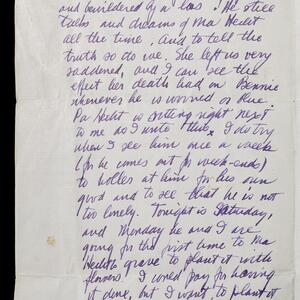 and bewildered by a loss. He still
talks and dreams of Ma Hecht
all the time, and to tell the
truth so do we. She left us very
saddened, and I can see the
effect her death had on Bennie
whenever he is worried or blue.
Pa Hecht is sitting right next
to me as I write this. I do try
when I see him once a week
(for he comes out for week-ends)
to holler at him for his own
good and to see that he is not
too lonely. Tonight is Saturday,
and Monday he and I are
going for the first time to Ma
Hecht's grave to plant it with
flowers. I could pay for having
it done, but I want to plant it